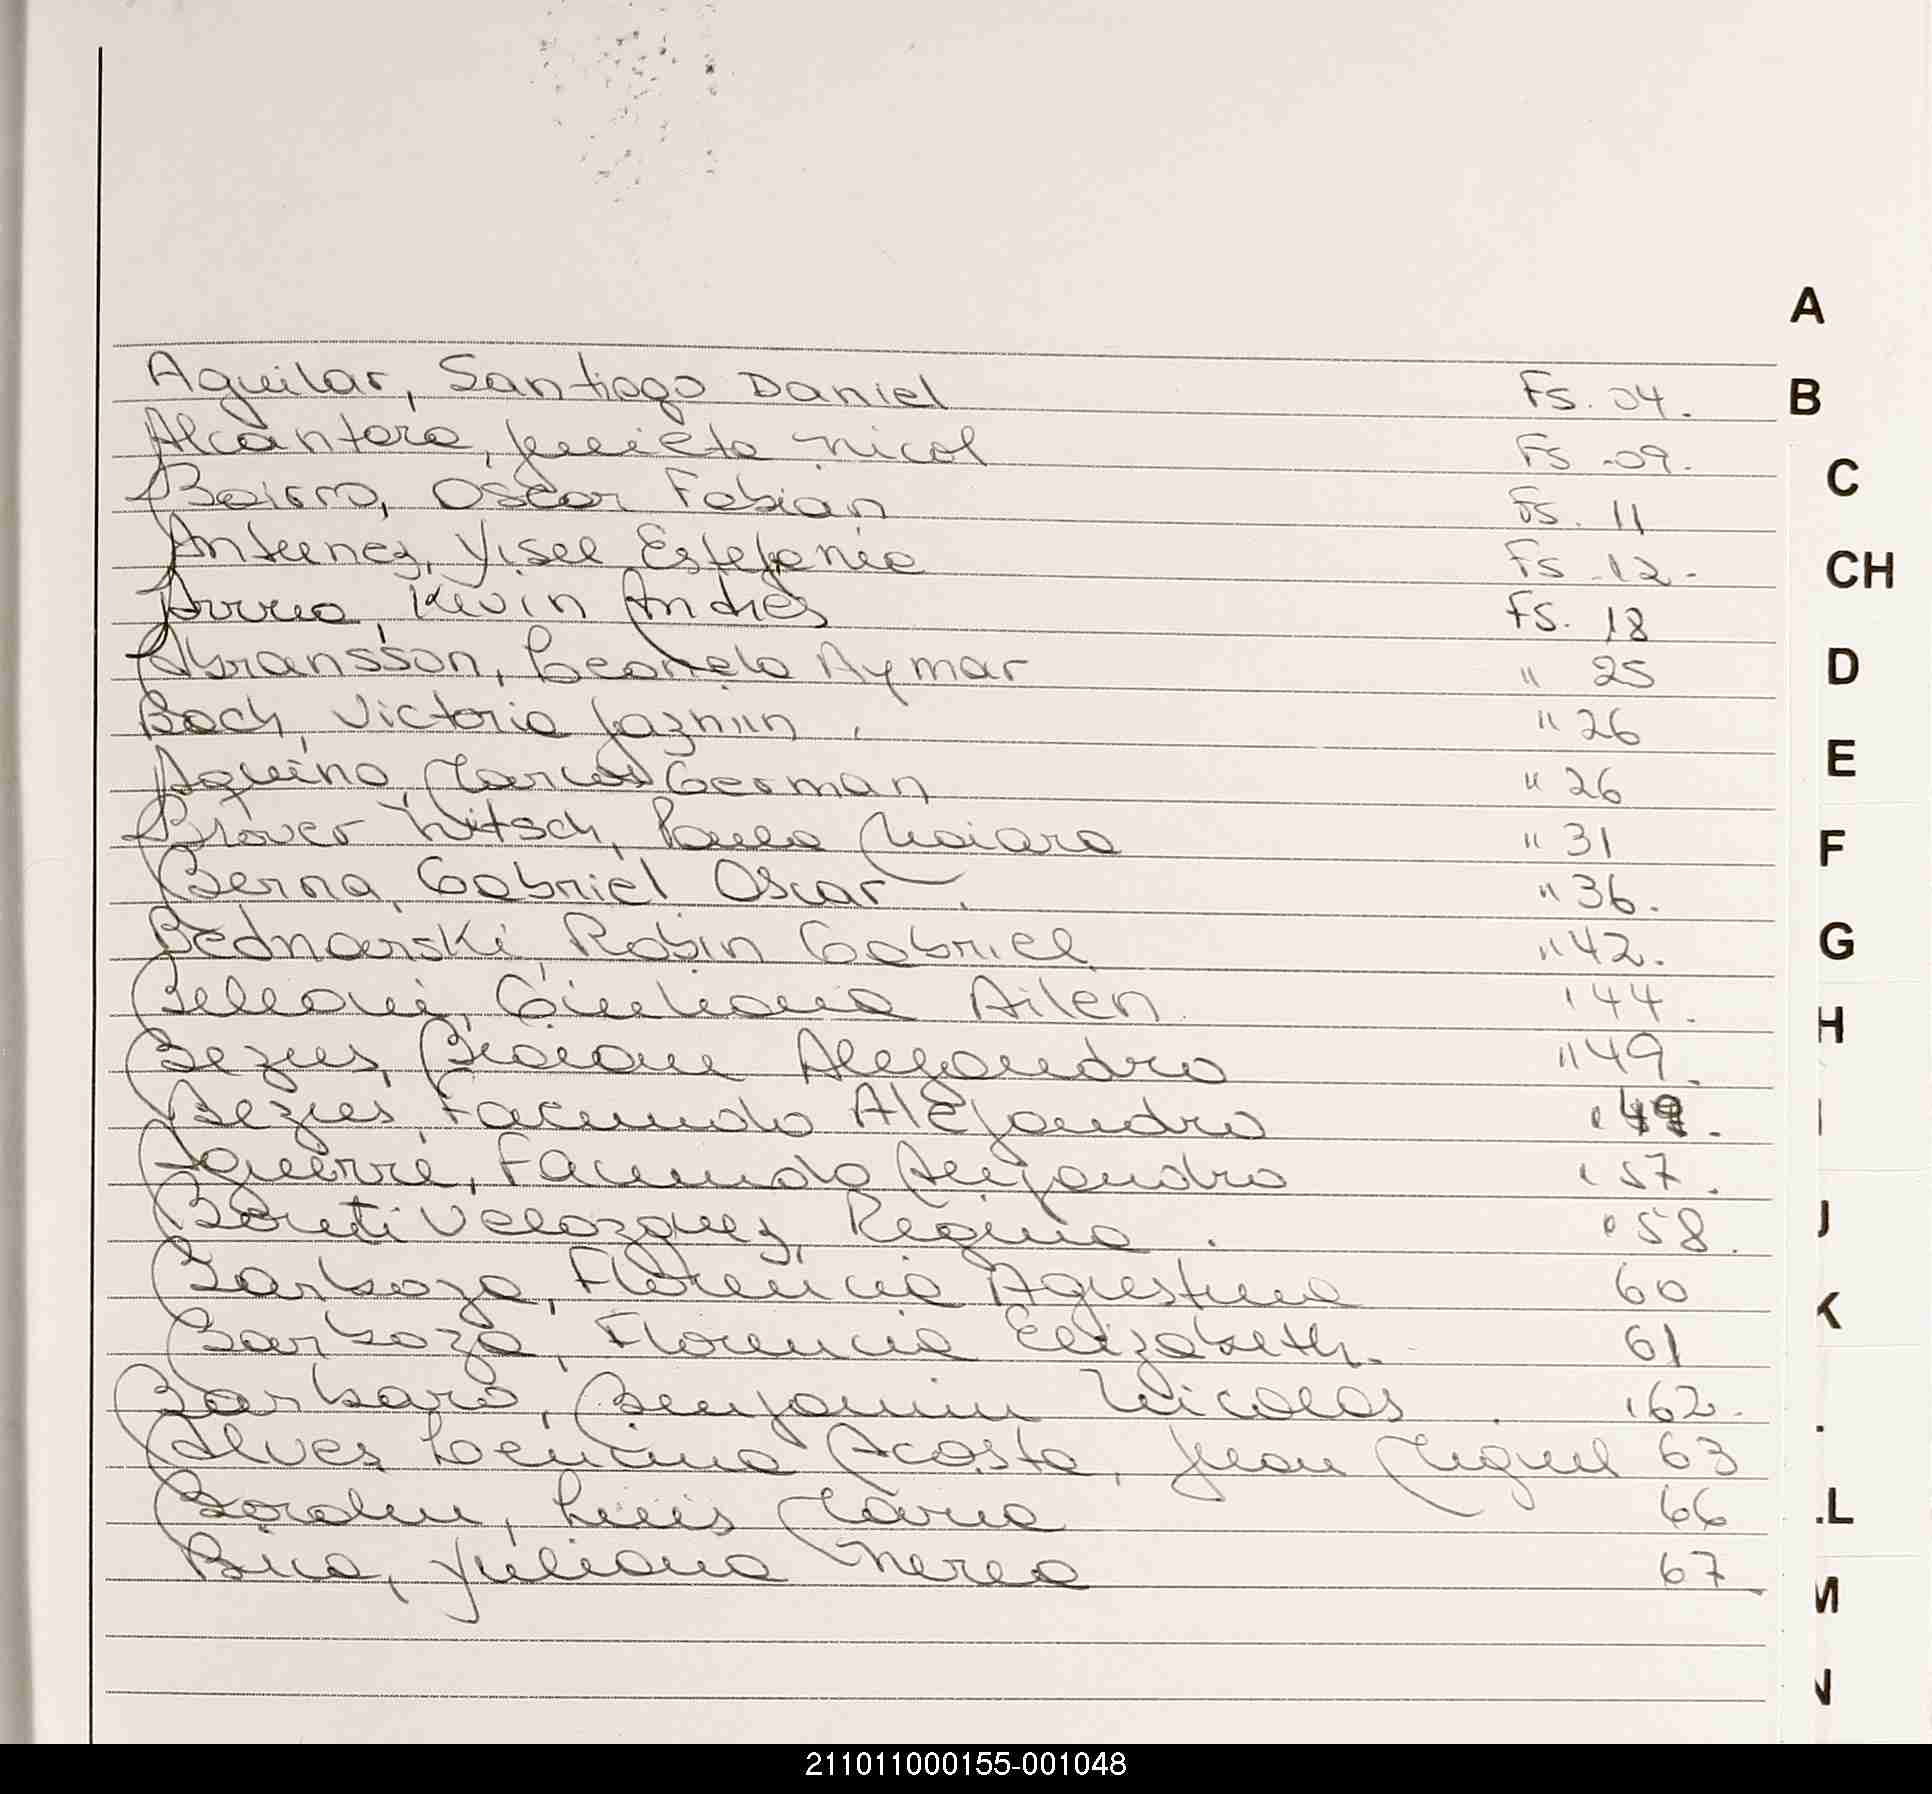 A
Aguilar, Santiago Daniel Fs. 04.
B
Alcantara, Julieta Nicol Fs. 09.
C
Bairro, Oscar Fabian Fs. 11
Antunez, Yisel Estefania Fs. 12.
CH
Arrua, Kevin Andrés Fs. 18
Abransson, Leonela Aymar " 25
D
Boch, Victoria Jazmin. " 26
E
Aquino, Marcos German " 26
Brover Nitsch, Paula Maiara " 31
F
Berna, Gabriel Oscar. " 36.
Bednarski, Robin Gabriel " 42.
G
Giuliana Ailen ' 44.
H
Bezus, Braian Alejandro " 49.
Bezus, Facundo Alejandro ' 49.
I
Aguirre, Facundo Alejandro ' 57.
J
Velazquez, Regina. ' 58.
Barboza, Florencia Agustina 60
K
Barboza, Florencia Elizabeth. 61
Barbaro, Benjamin Nicolas. ' 62.
Alves Lencina Acosta, Juan Miguel 63
L
Luis Mario 66
Juliana Nerea 67.
M
N
211011000155-001048